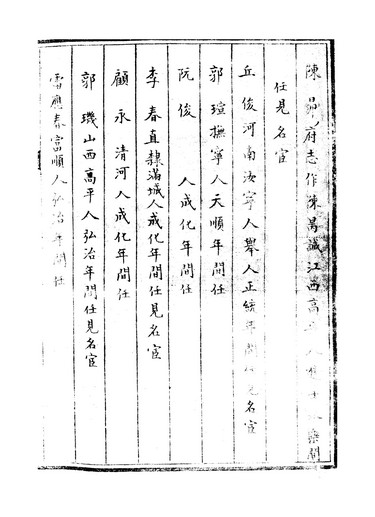 陳 府志作陳昌誠江西高 人 樂間
任見名宦
丘俊河南汝寧人舉人正統年間任見名宦
郭瑄撫寧人天順年間任
阮俊 人成化年間任
李春直隸滿城人成化年間任見名宦
顧永清河人成化年間任
郭璣山西高平人弘治年間任見名宦
雷應春富順人弘治年間任